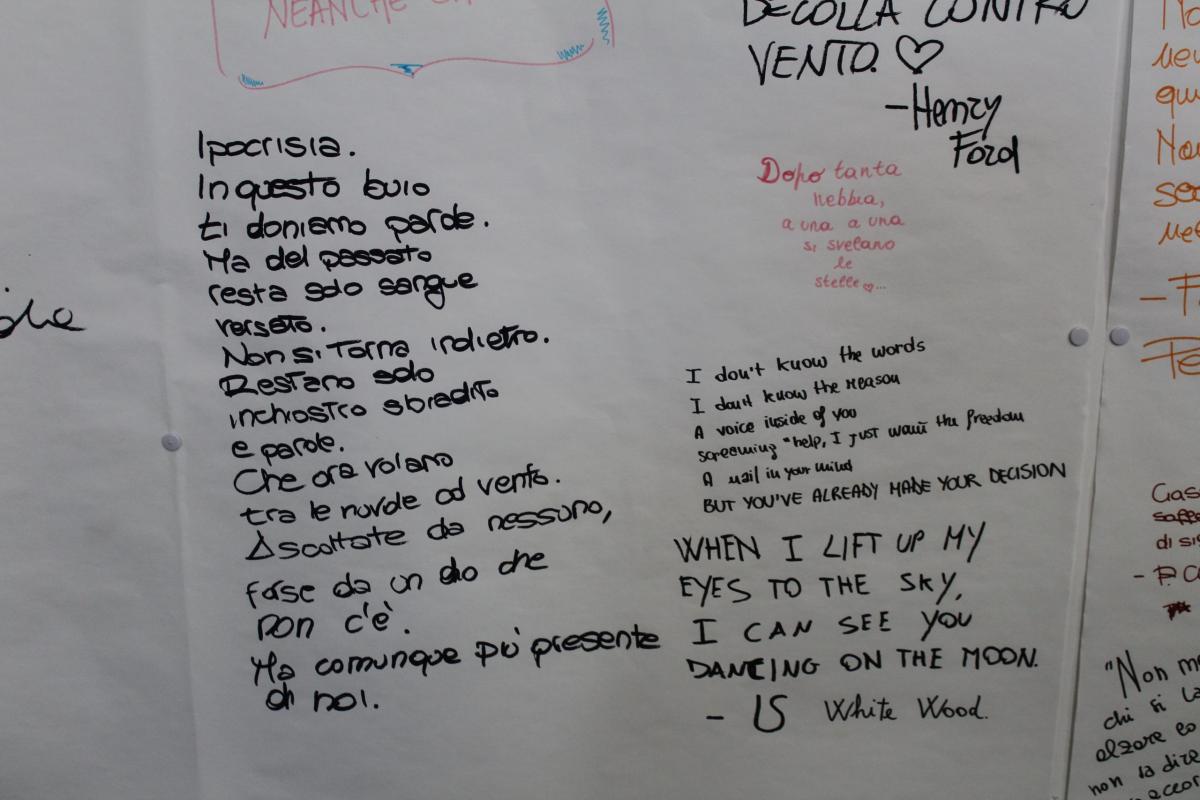 NEANCHE
DECOLLA CONTRO
VENTO. ♡
- Henry
Ford
Ipocrisia.
In questo buio
ti doniamo parole.
Ma del passato
resta solo sangue
versato.
Non si torna indietro.
Restano solo
inchiostro sbiadito
e parole.
Che ora volano
tra le nuvole ed vento.
Ascoltate da nessuno,
forse da un dio che
non c'è.
Ma comunque più presente
di noi.
Dopo tanta
nebbia,
a una a una
si svelano
le
stelle ♡...
I don't know the words
I don't know the reason
A voice inside of you
screaming "help, I just want the freedom
A nail in your mind
BUT YOU'VE ALREADY MADE YOUR DECISION
WHEN I LIFT UP MY
EYES TO THE SKY,
I CAN SEE YOU
DANCING ON THE MOON.
- US White Wood.
di
- P.
"Non
chi si
alzare
non la dire